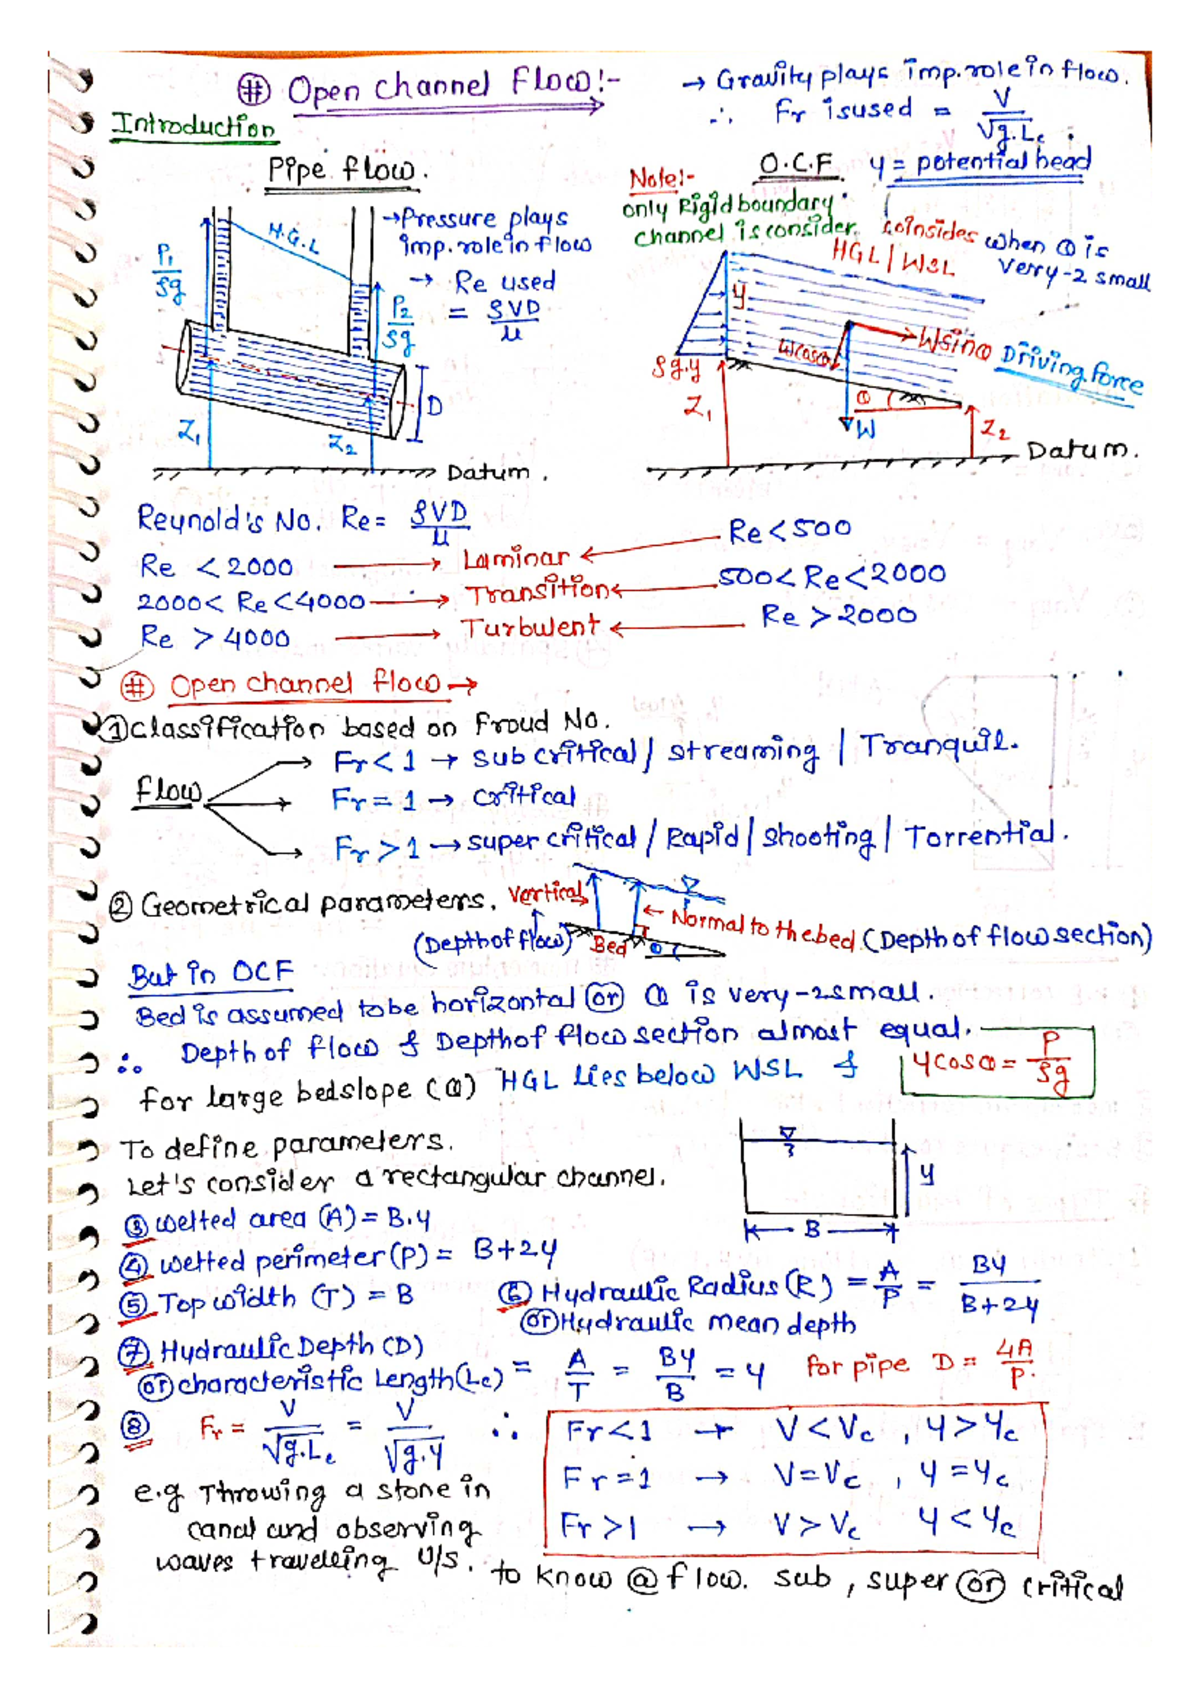 # Open channel Flow:-
→ Gravity plays imp. role in flow.
∴ Fr is used = V/√g.Lc .
Introduction
Pipe flow.
→ Pressure plays
imp. role in flow
→ Re used
= ρVD/μ
H.G.L
P1/ρg
P2/ρg
D
Z1
Z2
Datum .
Note:-
only Rigid boundary
channel is consider.
O.C.F y = potential head
coinsides when θ is
verry-2 small
HGL / WSL
y
ρg.y
Wcosθ
Wsinθ Driving force
θ
W
Z1
Z2
Datum.
Reynold's No. Re = ρVD/μ
Re < 2000 → Laminar ← Re < 500
2000 < Re < 4000 → Transition ← 500 < Re < 2000
Re > 4000 → Turbulent ← Re > 2000
# Open channel flow →
① Classification based on Froud No.
Flow
Fr < 1 → sub critical / streaming / Tranquil.
Fr = 1 → critical
Fr > 1 → super critical / Rapid / shooting / Torrential.
② Geometrical parameters.
Vertical
(Depth of flow)
Bed
θ
← Normal to the bed (Depth of flow section)
But in OCF
Bed is assumed to be horizontal or θ is very-2 small.
∴ Depth of flow & Depth of flow section almost equal.
for large bedslope (θ) HGL lies below WSL & ycosθ = P/ρg
To define parameters.
Let's consider a rectangular channel.
y
B
③ wetted area (A) = B.y
④ wetted perimeter (P) = B+2y
⑤ Top width (T) = B
⑥ Hydraulic Radius (R) = A/P = By/B+2y
or Hydraulic mean depth
⑦ Hydraulic Depth (D)
or characteristic Length (Lc) = A/T = By/B = y for pipe D = 4A/P.
⑧ Fr = V/√g.Lc = V/√g.y ∴
Fr < 1 → V < Vc , y > yc
Fr = 1 → V = Vc , y = yc
Fr > 1 → V > Vc y < yc
e.g Throwing a stone in
canal and observing
waves travelling U/s. to know @ flow. sub , super or critical